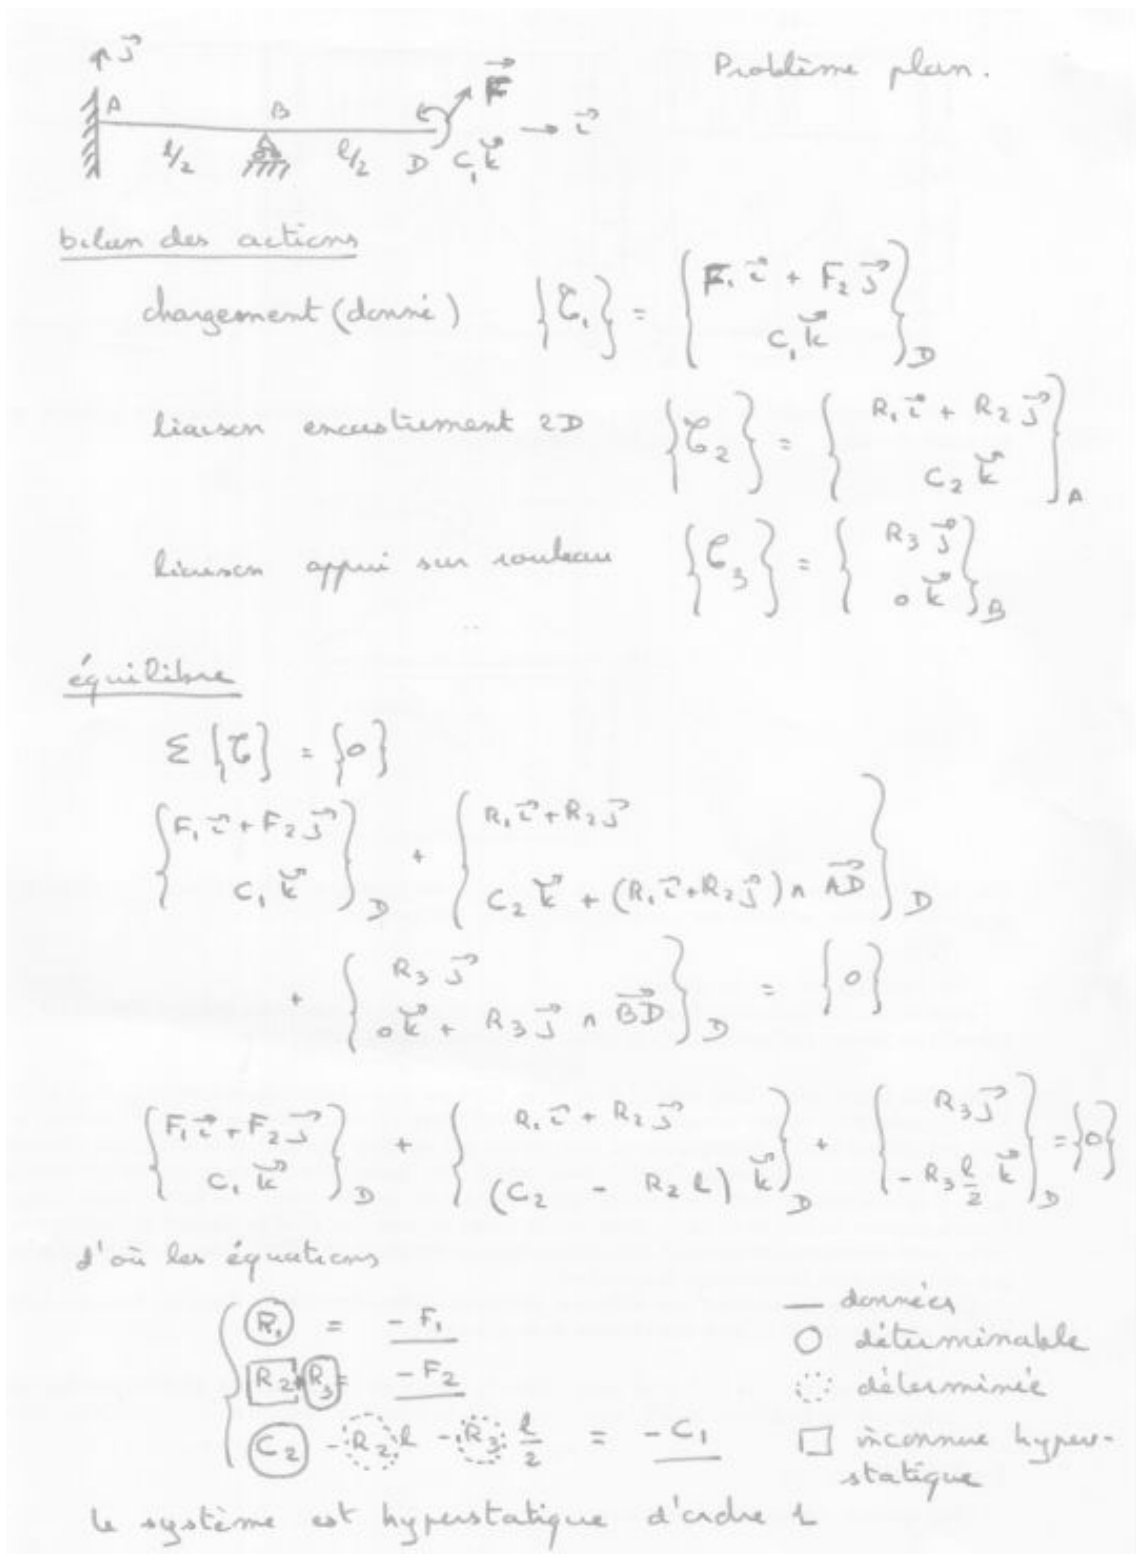 Problème plan.
j⃗
A B F⃗
l/2 l/2 D C₁ k⃗ i⃗
bilan des actions
chargement (donné) {𝒯₁} = { F₁ i⃗ + F₂ j⃗
C₁ k⃗ }D
liaison encastrement 2D {𝒯₂} = { R₁ i⃗ + R₂ j⃗
C₂ k⃗ }A
liaison appui sur rouleau {𝒯₃} = { R₃ j⃗
0 k⃗ }B
équilibre
Σ {𝒯} = {0}
{ F₁ i⃗ + F₂ j⃗ + { R₁ i⃗ + R₂ j⃗
C₁ k⃗ }D C₂ k⃗ + (R₁ i⃗ + R₂ j⃗) ∧ AD⃗ }D
+ { R₃ j⃗ = {0}
0 k⃗ + R₃ j⃗ ∧ BD⃗ }D
{ F₁ i⃗ + F₂ j⃗ + { R₁ i⃗ + R₂ j⃗ + { R₃ j⃗ = {0}
C₁ k⃗ }D (C₂ - R₂ l) k⃗ }D - R₃ l/2 k⃗ }D
d'où les équations
R₁ = - F₁
R₂ + R₃ = - F₂
C₂ - R₂ l - R₃ l/2 = - C₁
données
déterminable
déterminée
inconnue hyper-
statique
le système est hyperstatique d'ordre 1